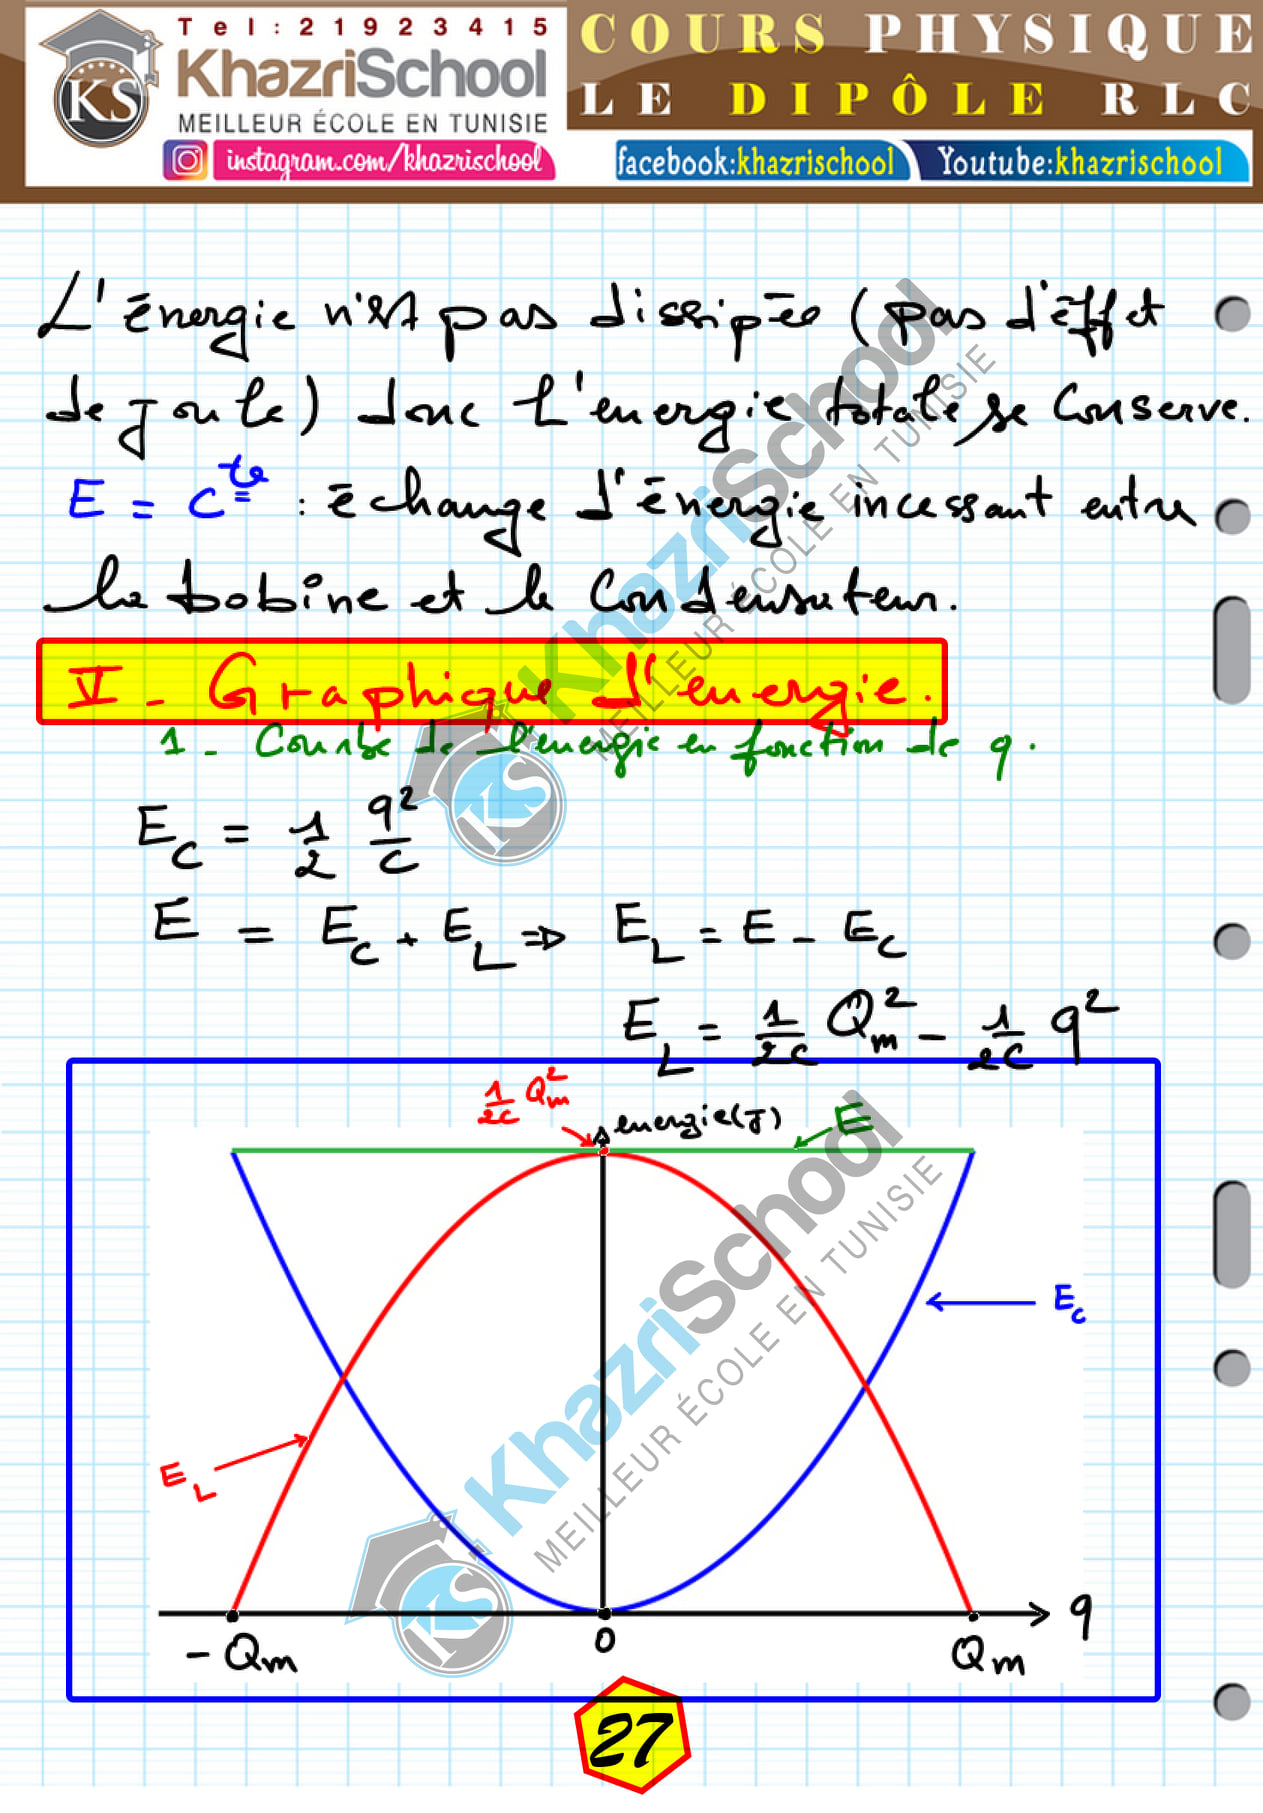 Tel:21923415
KhazriSchool
MEILLEUR ÉCOLE EN TUNISIE
KS
instagram.com/khazrischool
COURS PHYSIQUE
LE DIPÔLE RLC
facebook:khazrischool
Youtube:khazrischool
L'énergie n'est pas dissipée (pas d'éffet
de Joule) donc l'énergie totale se conserve.
E = C^te : échange d'énergie incessant entre
la bobine et le condensateur.
V - Graphique d'energie.
1 - Courbe de l'energie en fonction de q.
E_C = 1/2 q²/C
E = E_C + E_L ⇒ E_L = E - E_C
E_L = 1/2C Q_m² - 1/2C q²
1/2C Q_m²
energie(J)
E
E_C
E_L
-Q_m
0
Q_m
q
KhazriSchool
MEILLEUR ÉCOLE EN TUNISIE
KS
KhazriSchool
MEILLEUR ÉCOLE EN TUNISIE
KS
27